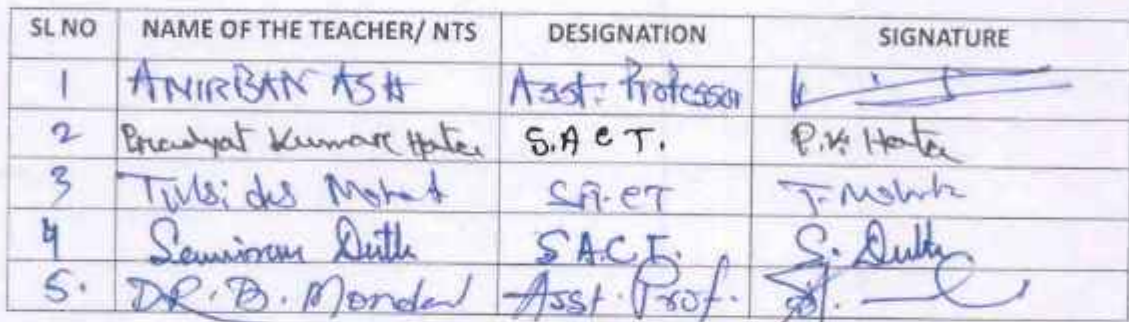 SL NO NAME OF THE TEACHER/ NTS DESIGNATION SIGNATURE
1 ANIRBAN ASH Asst. Professor
2 Pradyat Kumar Hata S.A C T. P.K. Hata
3 Tulsi das SACT T.
4 Dutta S.A.C.T. S. Dutta
5. DR. B. Mondal Asst. Prof.